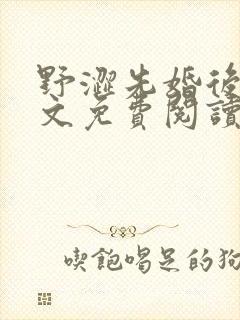 野澀先婚後
文免費閱讀
喫飽喝足的狗